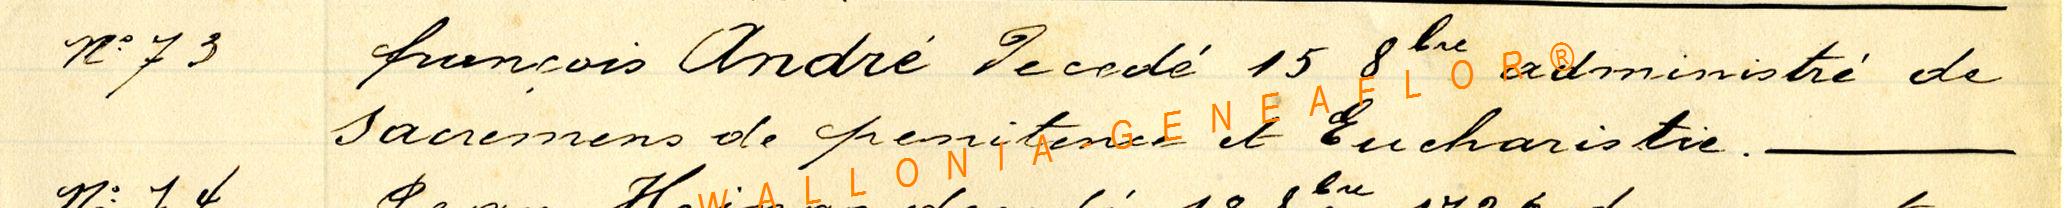 N° 73 françois André Decedé 15 8bre administré de
Sacremens de penitence et Eucharistie.
WALLONIA GENEAFLOR®
N° 74 Jean 18 8bre